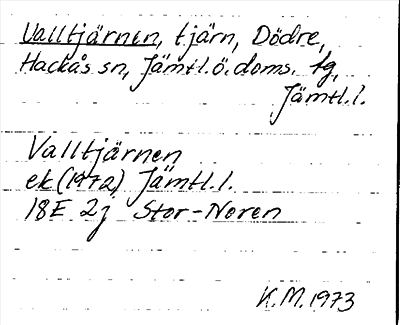 Valltjärnen, tjärn, Dödre,
Hackås sn, Jämtl.ö.doms. tg,
Jämtl.l.
Valltjärnen
ek (1972) Jämtl.l.
18E 2j Stor-Noren
K.M. 1973